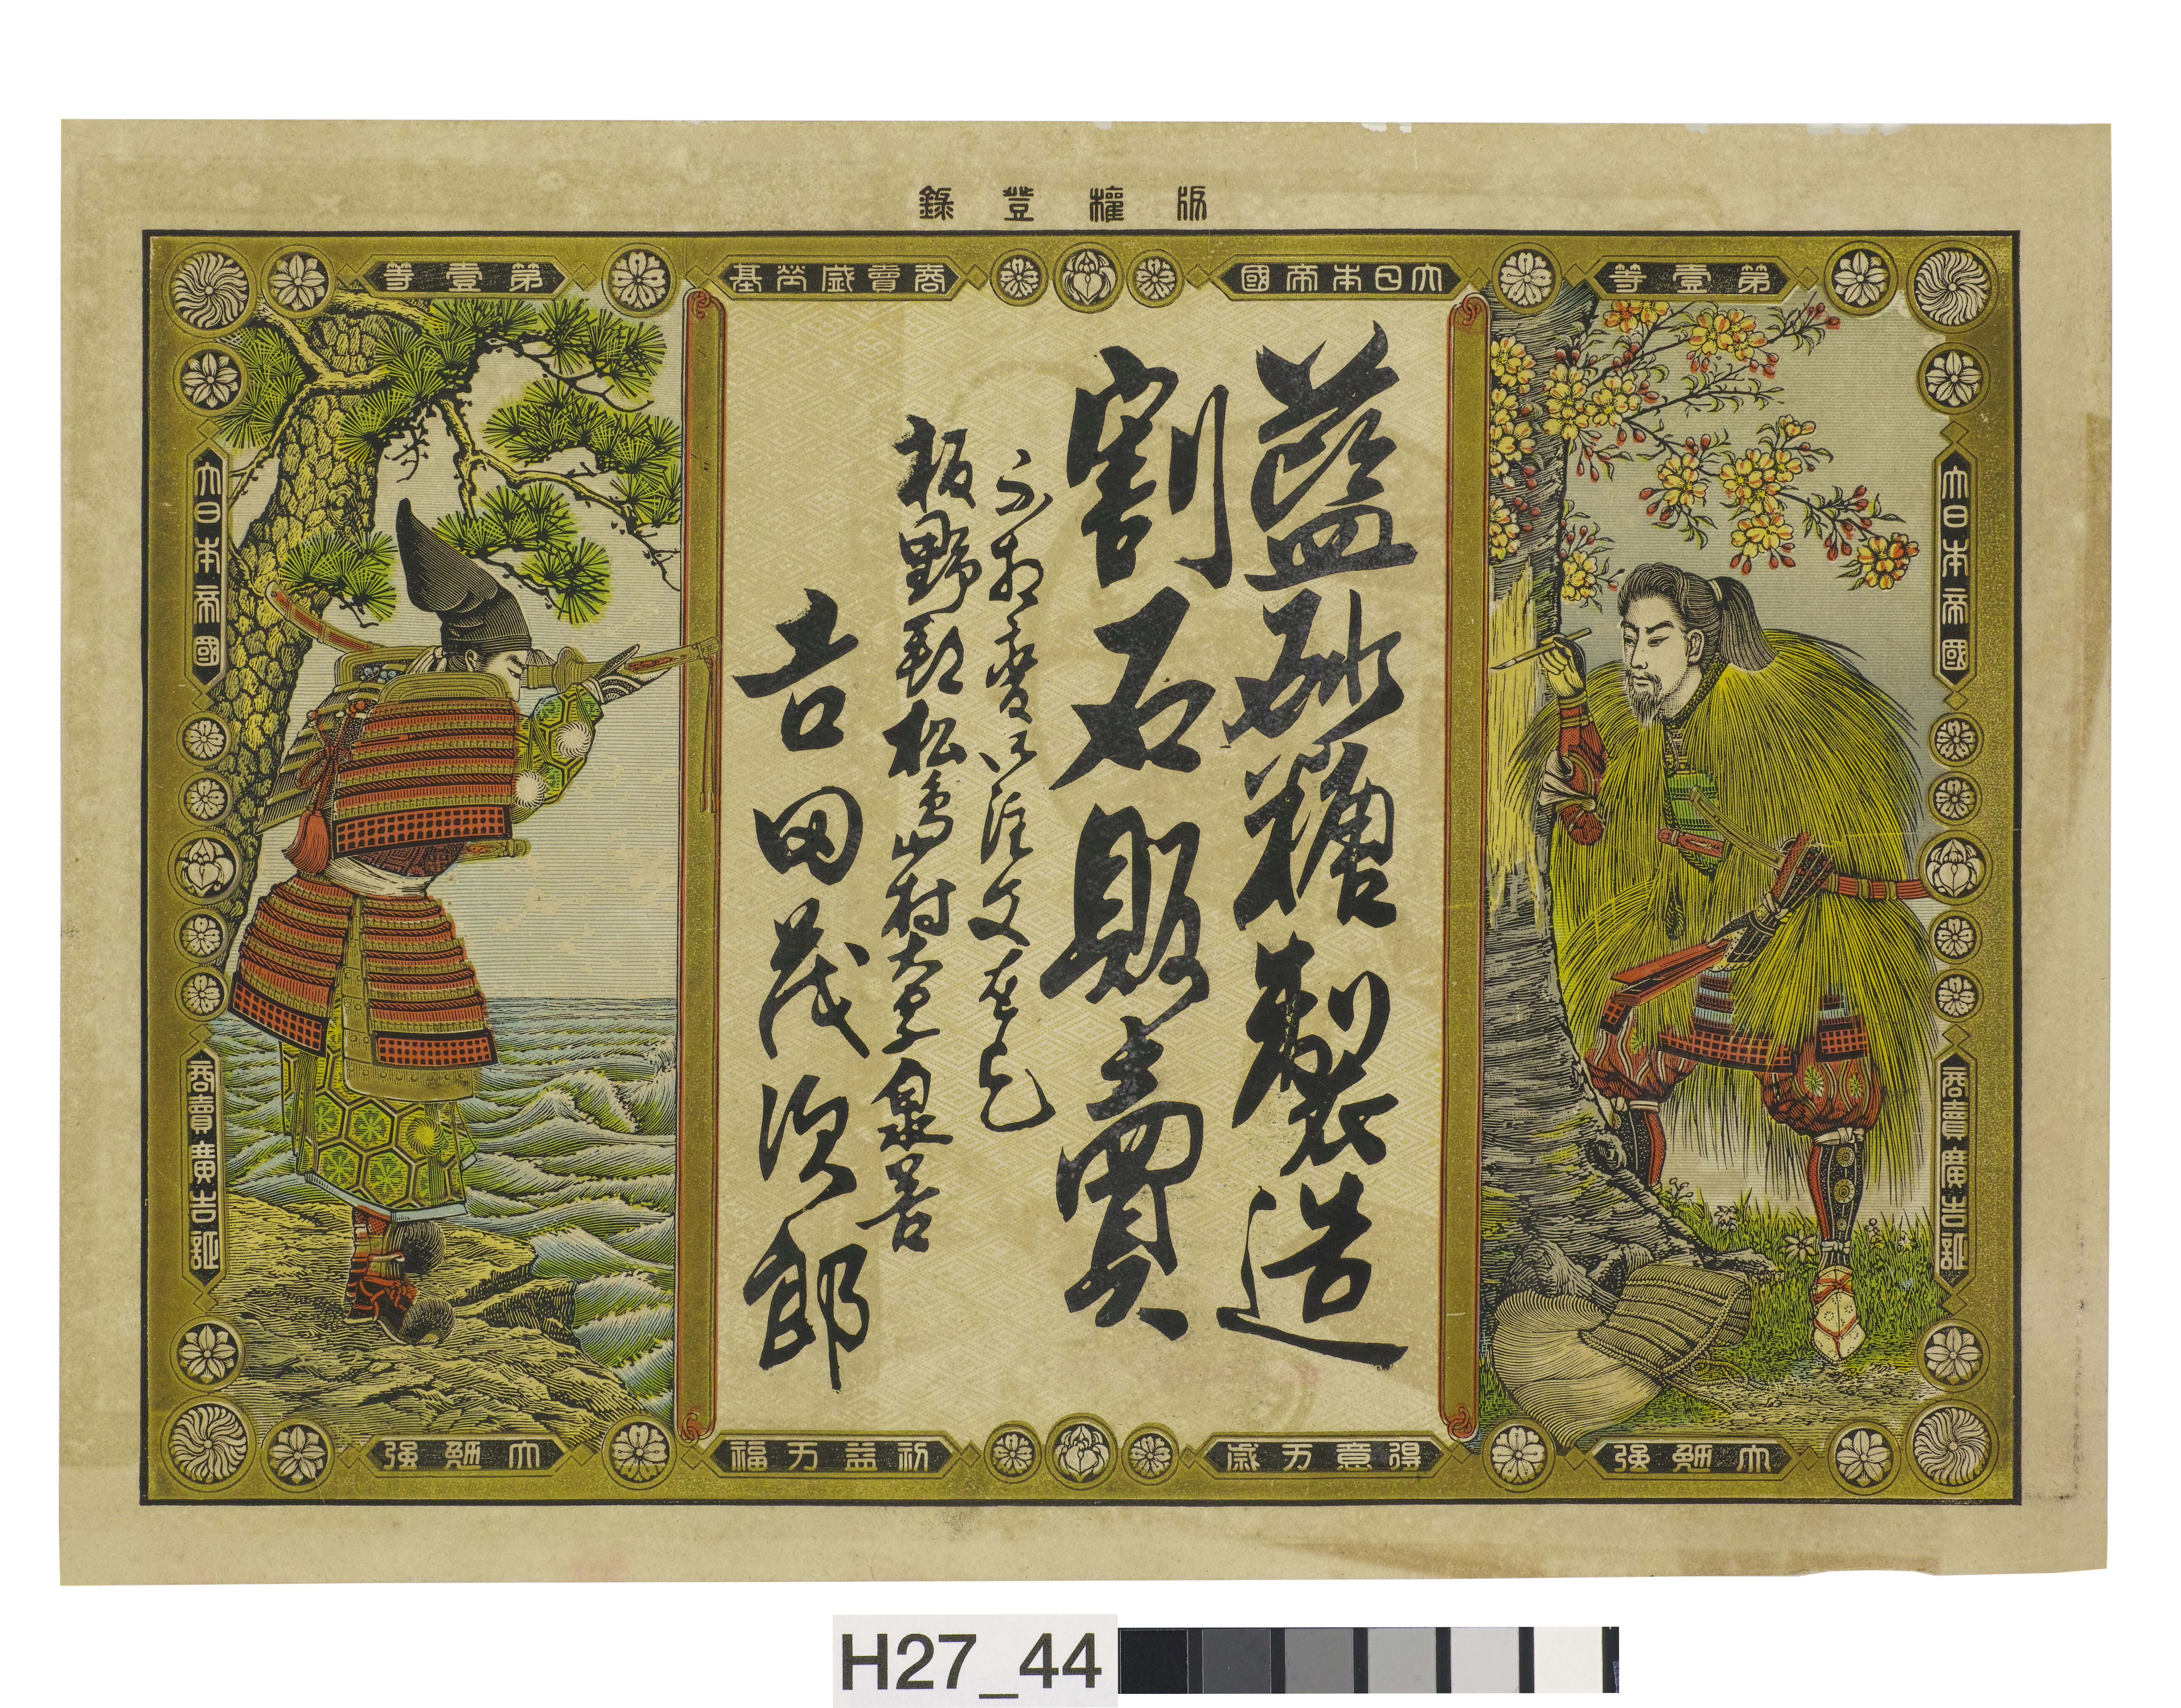 版權登錄
第壹等
大日本帝國
商賣盛榮基
第壹等
大日本帝國
商賣廣告
藍砂糖製造
割石販賣
不相變御注文を乞
板野郡松島村大字泉谷
吉田茂次郎
大日本帝國
商賣廣告
大勉強
得意万歳
利益万福
大勉強
H27_44